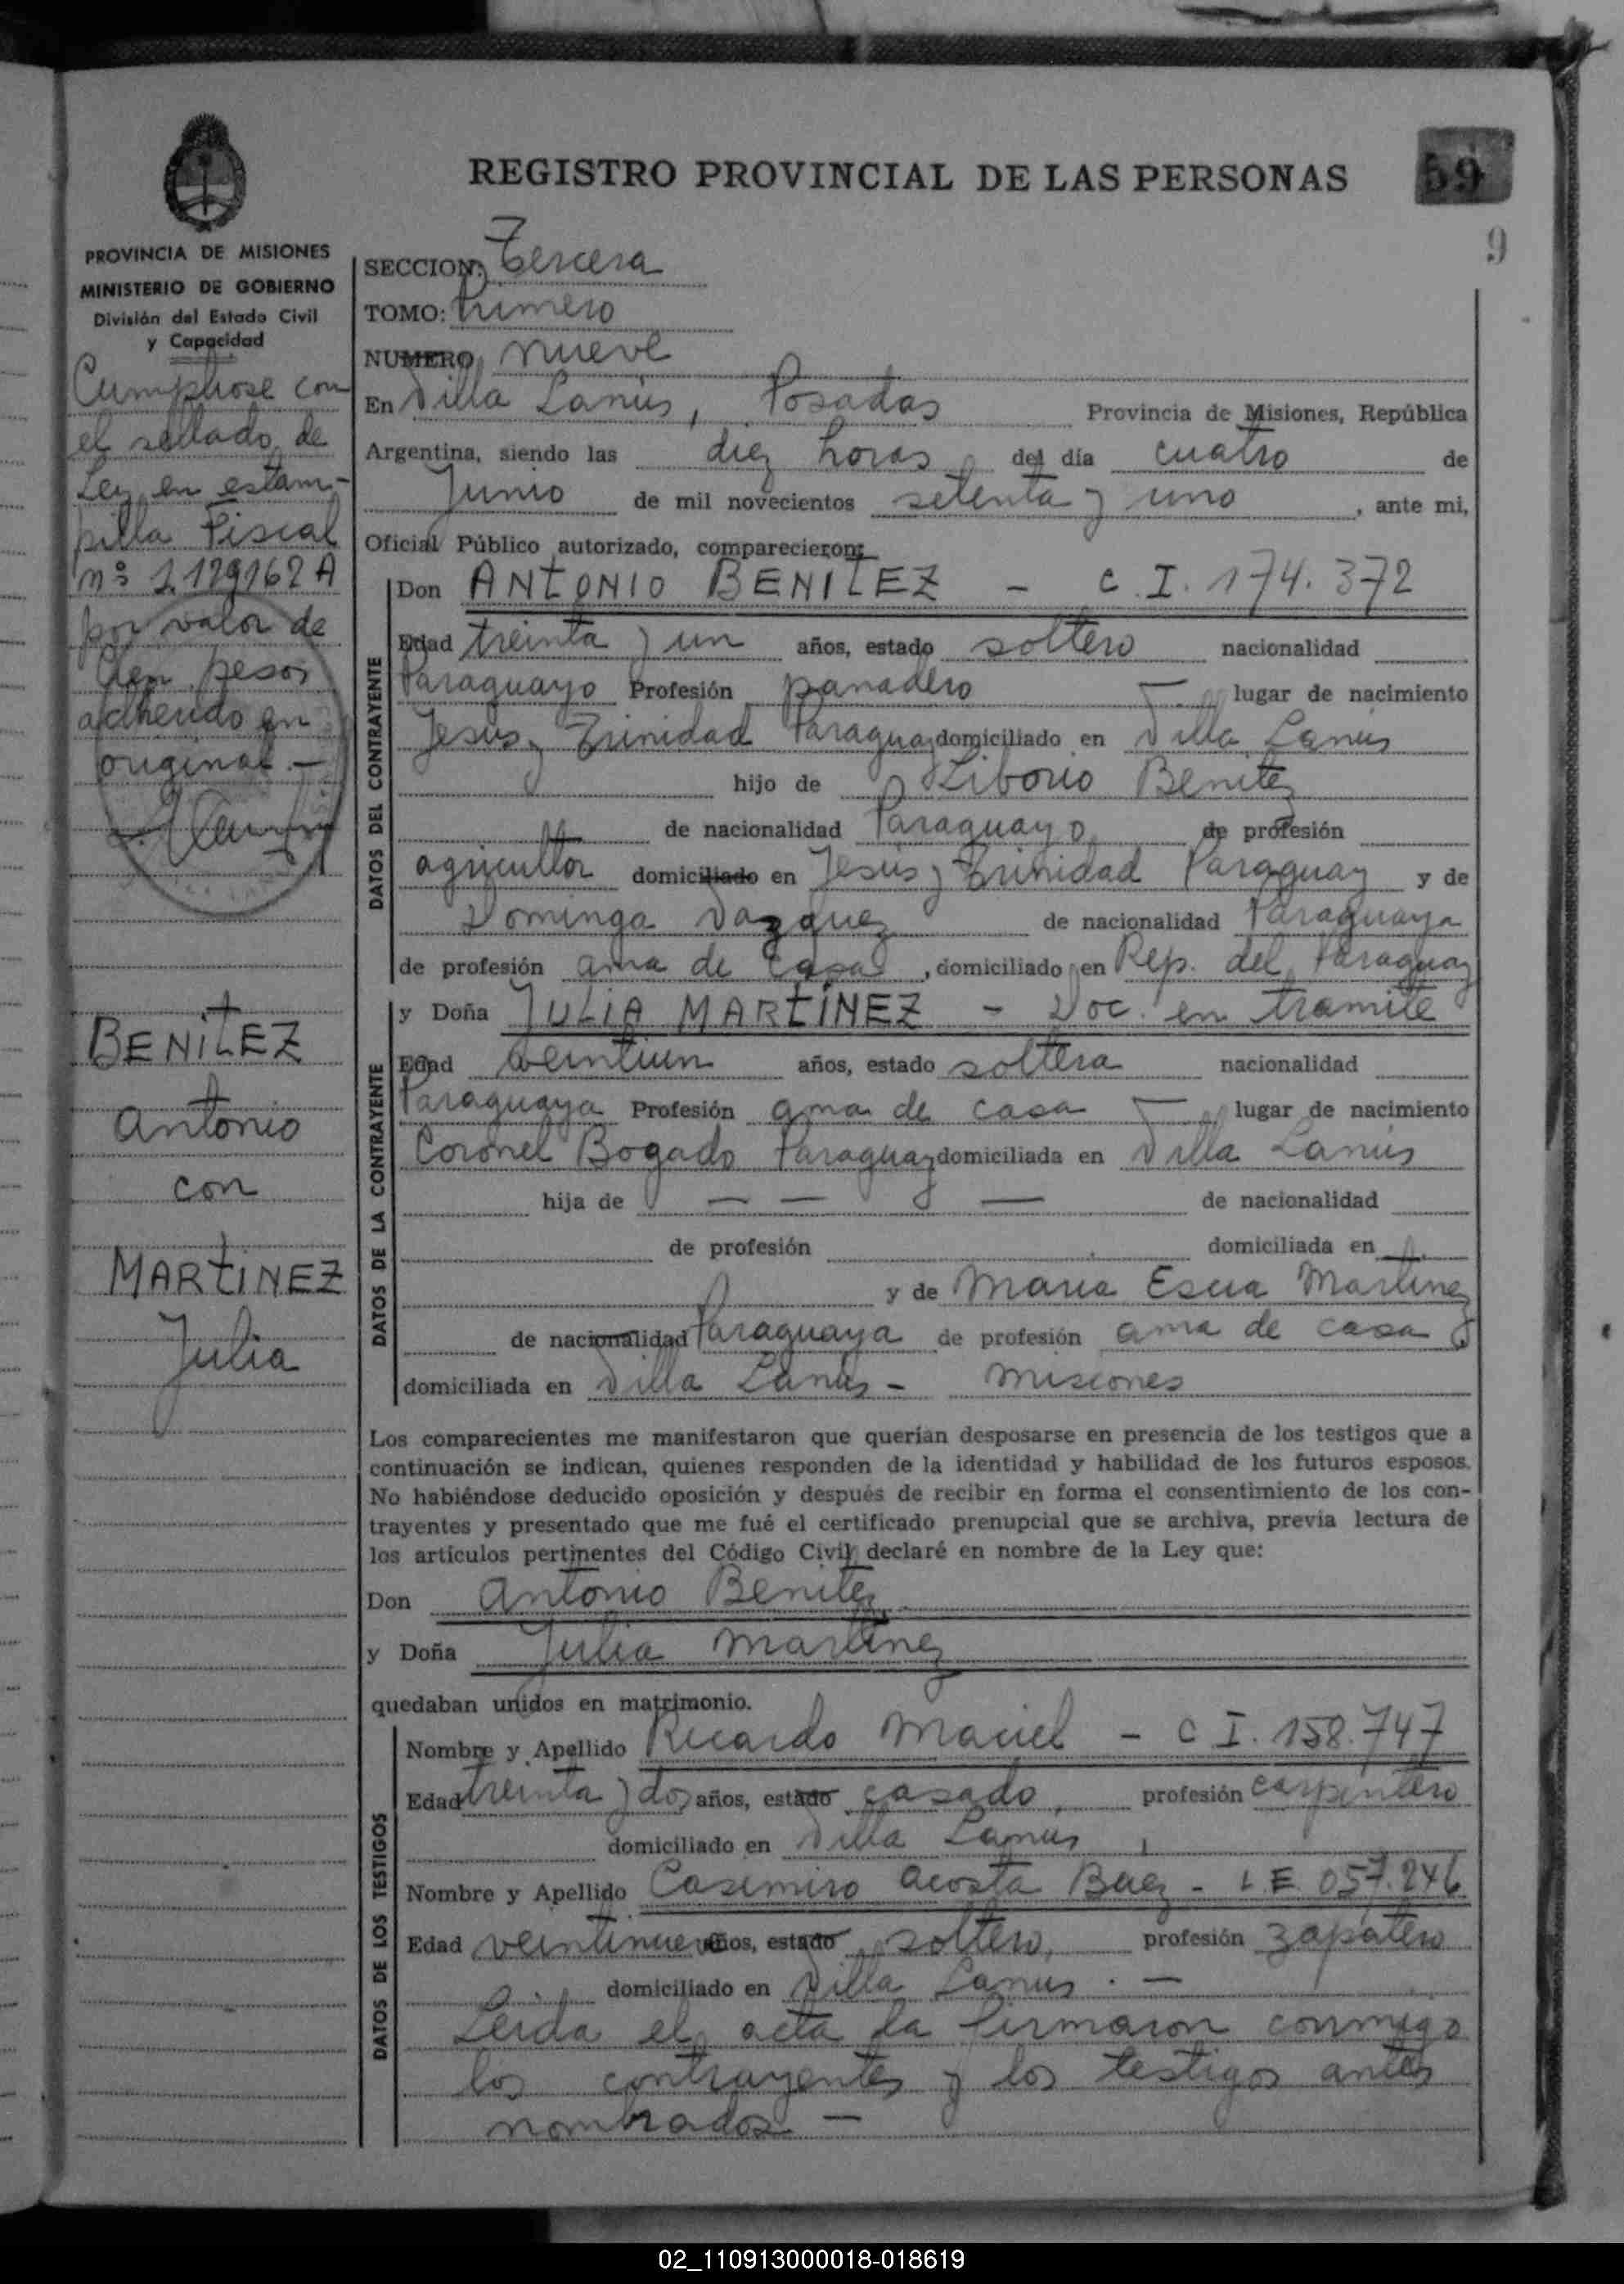 REGISTRO PROVINCIAL DE LAS PERSONAS
59
9
PROVINCIA DE MISIONES
MINISTERIO DE GOBIERNO
División del Estado Civil
y Capacidad
Cumpliose con
el sellado de
Ley en estam-
pilla Fiscal
nº 1.129162 A
por valor de
Cien pesos
adherido en
original.-
BENITEZ
Antonio
con
MARTINEZ
Julia
SECCION: Tercera
TOMO: Primero
NUMERO nueve
En Villa Lanús, Posadas Provincia de Misiones, República
Argentina, siendo las diez horas del día cuatro de
Junio de mil novecientos setenta y uno, ante mi,
Oficial Público autorizado, comparecieron:
DATOS DEL CONTRAYENTE
Don ANTONIO BENITEZ - C.I. 174.372
Edad treinta y un años, estado soltero nacionalidad
Paraguayo Profesión panadero — lugar de nacimiento
Jesús y Trinidad Paraguay domiciliado en Villa Lanús
hijo de Liborio Benitez
de nacionalidad Paraguayo, de profesión
agricultor domiciliado en Jesús y Trinidad Paraguay y de
Dominga Vazquez de nacionalidad Paraguaya
de profesión ama de casa, domiciliado en Rep. del Paraguay
DATOS DE LA CONTRAYENTE
y Doña JULIA MARTÍNEZ - Doc. en tramite
Edad veintiun años, estado soltera nacionalidad
Paraguaya Profesión ama de casa — lugar de nacimiento
Coronel Bogado Paraguay domiciliada en Villa Lanús
hija de — — — de nacionalidad
de profesión domiciliada en
y de Maria Martinez
de nacionalidad Paraguaya de profesión ama de casa
domiciliada en Villa Lanús - Misiones
Los comparecientes me manifestaron que querían desposarse en presencia de los testigos que a
continuación se indican, quienes responden de la identidad y habilidad de los futuros esposos.
No habiéndose deducido oposición y después de recibir en forma el consentimiento de los con-
trayentes y presentado que me fué el certificado prenupcial que se archiva, previa lectura de
los artículos pertinentes del Código Civil declaré en nombre de la Ley que:
Don Antonio Benitez
y Doña Julia Martinez
quedaban unidos en matrimonio.
DATOS DE LOS TESTIGOS
Nombre y Apellido Ricardo Maciel - C I. 158.747
Edad treinta y dos años, estado casado, profesión carpintero
domiciliado en Villa Lanus
Nombre y Apellido Casimiro Acosta Baez - L.E. 057.246
Edad veintinueve años, estado soltero, profesión zapatero
domiciliado en Villa Lanus . —
Leida el acta la firmaron conmigo
los contrayentes y los testigos antes
nombrados —
02_110913000018-018619